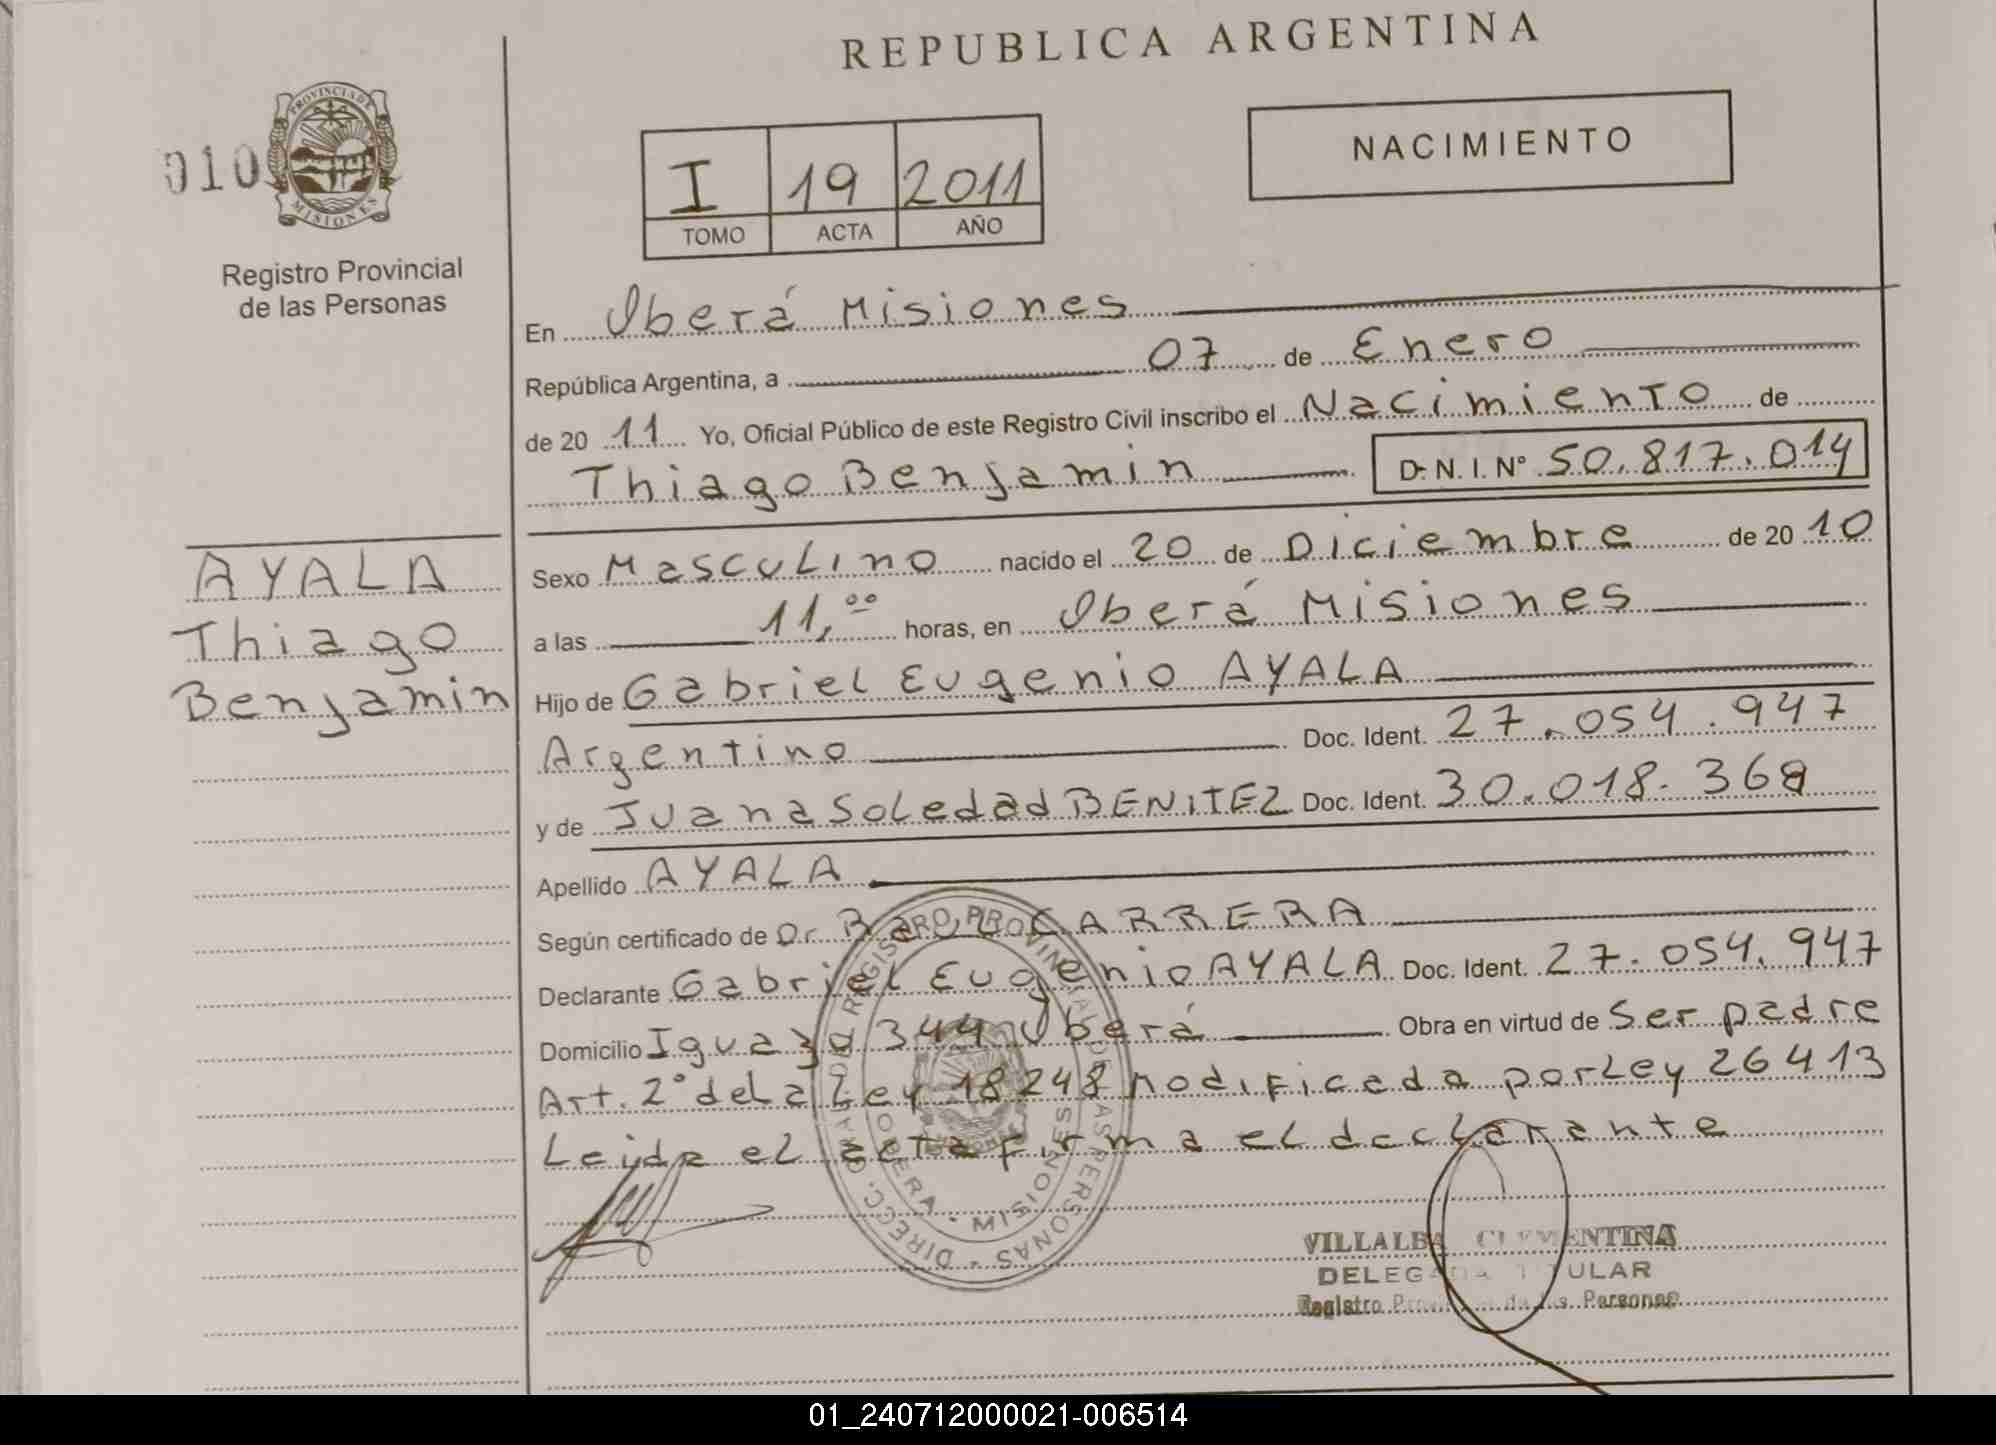 REPUBLICA ARGENTINA
010
PROVINCIA DE MISIONES
Registro Provincial
de las Personas
I 19 2011
TOMO ACTA AÑO
NACIMIENTO
En Oberá Misiones
República Argentina, a 07 de Enero
de 20 11 Yo, Oficial Público de este Registro Civil inscribo el Nacimiento de
Thiago Benjamin D.N.I. Nº 50.817.014
AYALA
Thiago
Benjamin
Sexo Masculino nacido el 20 de Diciembre de 20 10
a las 11,00 horas, en Oberá Misiones
Hijo de Gabriel Eugenio AYALA
Argentino Doc. Ident. 27.054.947
y de Juana Soledad BENITEZ Doc. Ident. 30.018.368
Apellido AYALA
Según certificado de Dr. CARRERA
Declarante Gabriel Eugenio AYALA Doc. Ident. 27.054.947
Domicilio Iguazu 344 Oberá Obra en virtud de Ser padre
Art. 2° de La Ley 18248 Modificada por Ley 26413
Leida el acta firma el declarante
DIRECC. GRAL. DEL REGISTRO PROVINCIAL DE LAS PERSONAS
OBERA - MISIONES
VILLALBA CLEMENTINA
DELEGADA TITULAR
Registro Provincial de las Personas
01_240712000021-006514